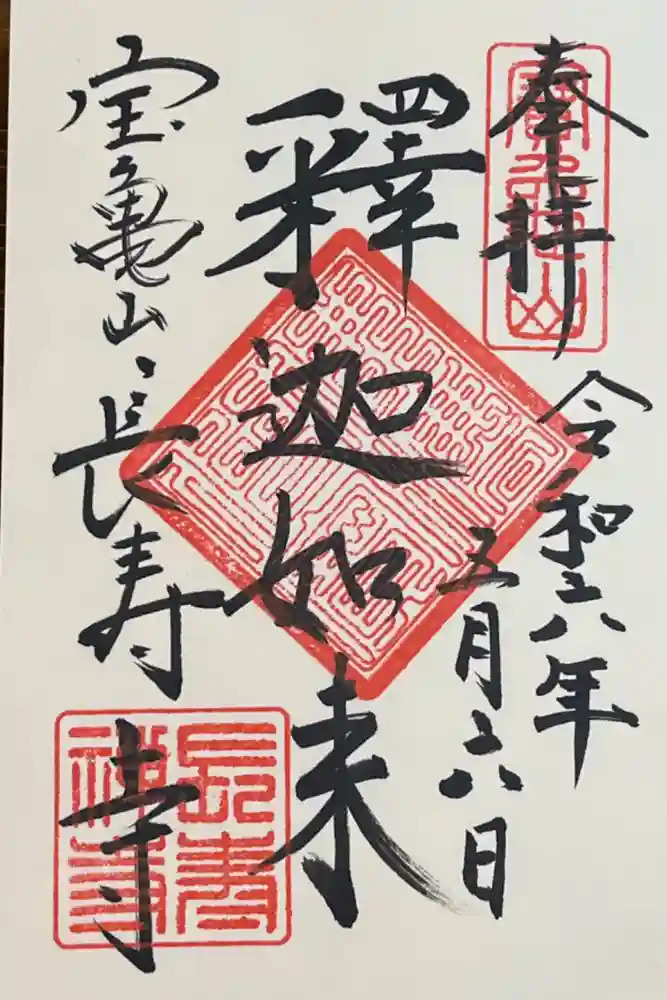 奉拝
令和六年
五月六日
釋迦如来
宝亀山長寿寺
寶龜山
長壽禅寺